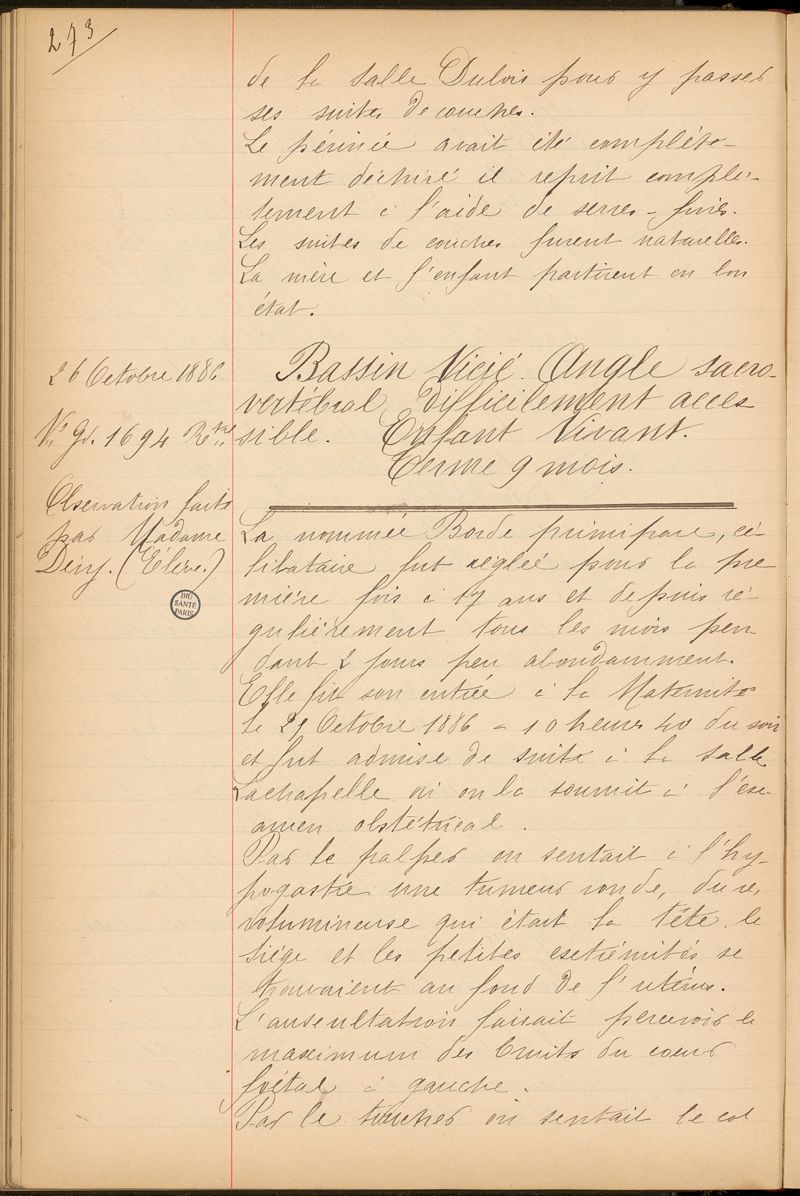 273
de la salle Dubois pour y passer
ses suites de couches.
Le périnée avait été complète-
ment déchiré il reprit complè-
tement à l'aide de serres-fines.
Les suites de couches furent naturelles.
La mère et l'enfant partirent en bon
état.
26 Octobre 1886
Bassin Vicié. Angle sacro-
vertébral difficilement acces
N° gd. 1694
sible. Enfant Vivant.
Terme 9 mois.
Observation faite
par Madame
Dény. (Elève.)
BIU
SANTÉ
PARIS
La nommée Borde primipare, cé-
libataire fut réglée pour la pre
mière fois à 17 ans et depuis ré-
gulièrement tous les mois pen
dant 2 jours peu abondamment.
Elle fit son entrée à la Maternité
le 21 Octobre 1886 - 10 heures 40 du soir
et fut admise de suite à la salle
Lachapelle où on la soumit à l'ex-
amen obstétrical.
Par le palper on sentait à l'hy-
pogastre une tumeur ronde, dure,
volumineuse qui était la tête, le
siège et les petites extrémités se
trouvaient au fond de l'utérus.
L'auscultation faisait percevoir le
maximum des bruits du coeur
foetal à gauche.
Par le toucher on sentait le col